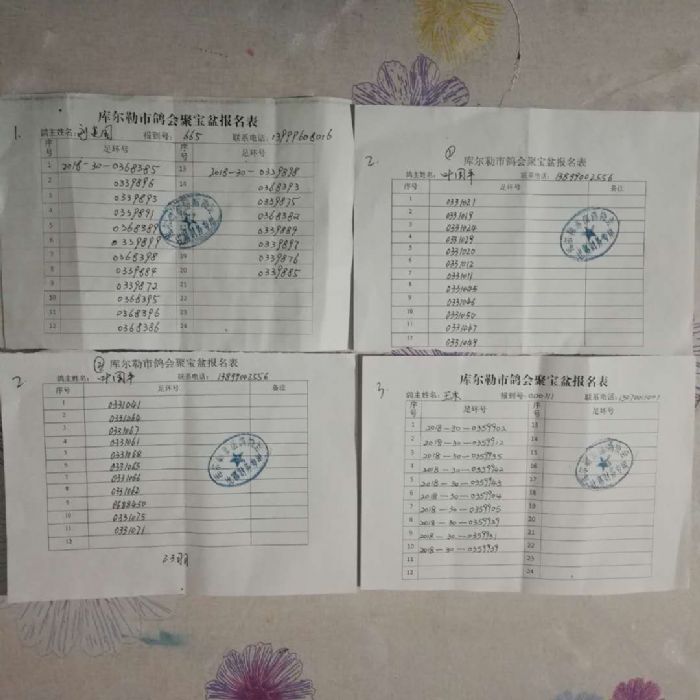 1.
库尔勒市鸽会聚宝盆报名表
鸽主姓名: 报到号: 665 联系电话: 13999608016
序号 足环号 序号 足环号
1 2018-30-0368385 13 2018-30-0339898
2 0339896 14 0368393
3 0339893 15 0339875
4 0339891 0368382
5 0368389 0339889
6 0339899 0339897
7 0368398 19 0339876
8 0339884 20 0339885
9 0339872 21
10 0368395 22
11 0368396 23
12 0368386 24
2. ①
库尔勒市鸽会聚宝盆报名表
鸽主姓名: 叶国平 联系电话: 13899002556
序号 足环号 备注
1 0331021
2 0331019
3 0331024
4 0331029
5 0331020
6 0331012
7 0331011
8 0331045
9 0331046
10 0331050
11 0331047
12 0331049
2. ②
库尔勒市鸽会聚宝盆报名表
鸽主姓名: 叶国平 联系电话: 13899002556
序号 足环号 备注
1 0331041
2 0331064
3 0331067
4 0331061
5 0331068
6 0331065
7 0331066
8 0331062
9 0688450
10 0331075
11 0331071
12
23羽
3.
库尔勒市鸽会聚宝盆报名表
鸽主姓名: 报到号: 联系电话:
序号 足环号 序号 足环号
1 2018-30-0359902 13
2 2018-30-0359912 14
3 2018-30-0359935 15
4 2018-30-0359942 16
5 2018-30-0359943 17
6 2018-30-0359904 18
7 2018-30-0359905 19
8 2018-30-0359929 20
9 2018-30-0359921 21
10 2018-30-0359939 22
11 23
12 24